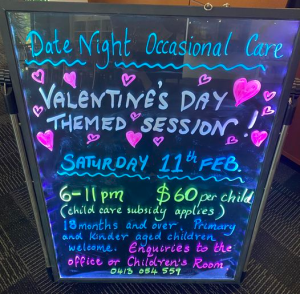 Date Night Occasional Care
VALENTINE'S DAY
THEMED SESSION!
SATURDAY 11th FEB.
6-11pm $60 per child
(child care subsidy applies)
18 months and over. Primary
and kinder aged children
welcome. Enquiries to the
office or Children's Room
0413 054 559